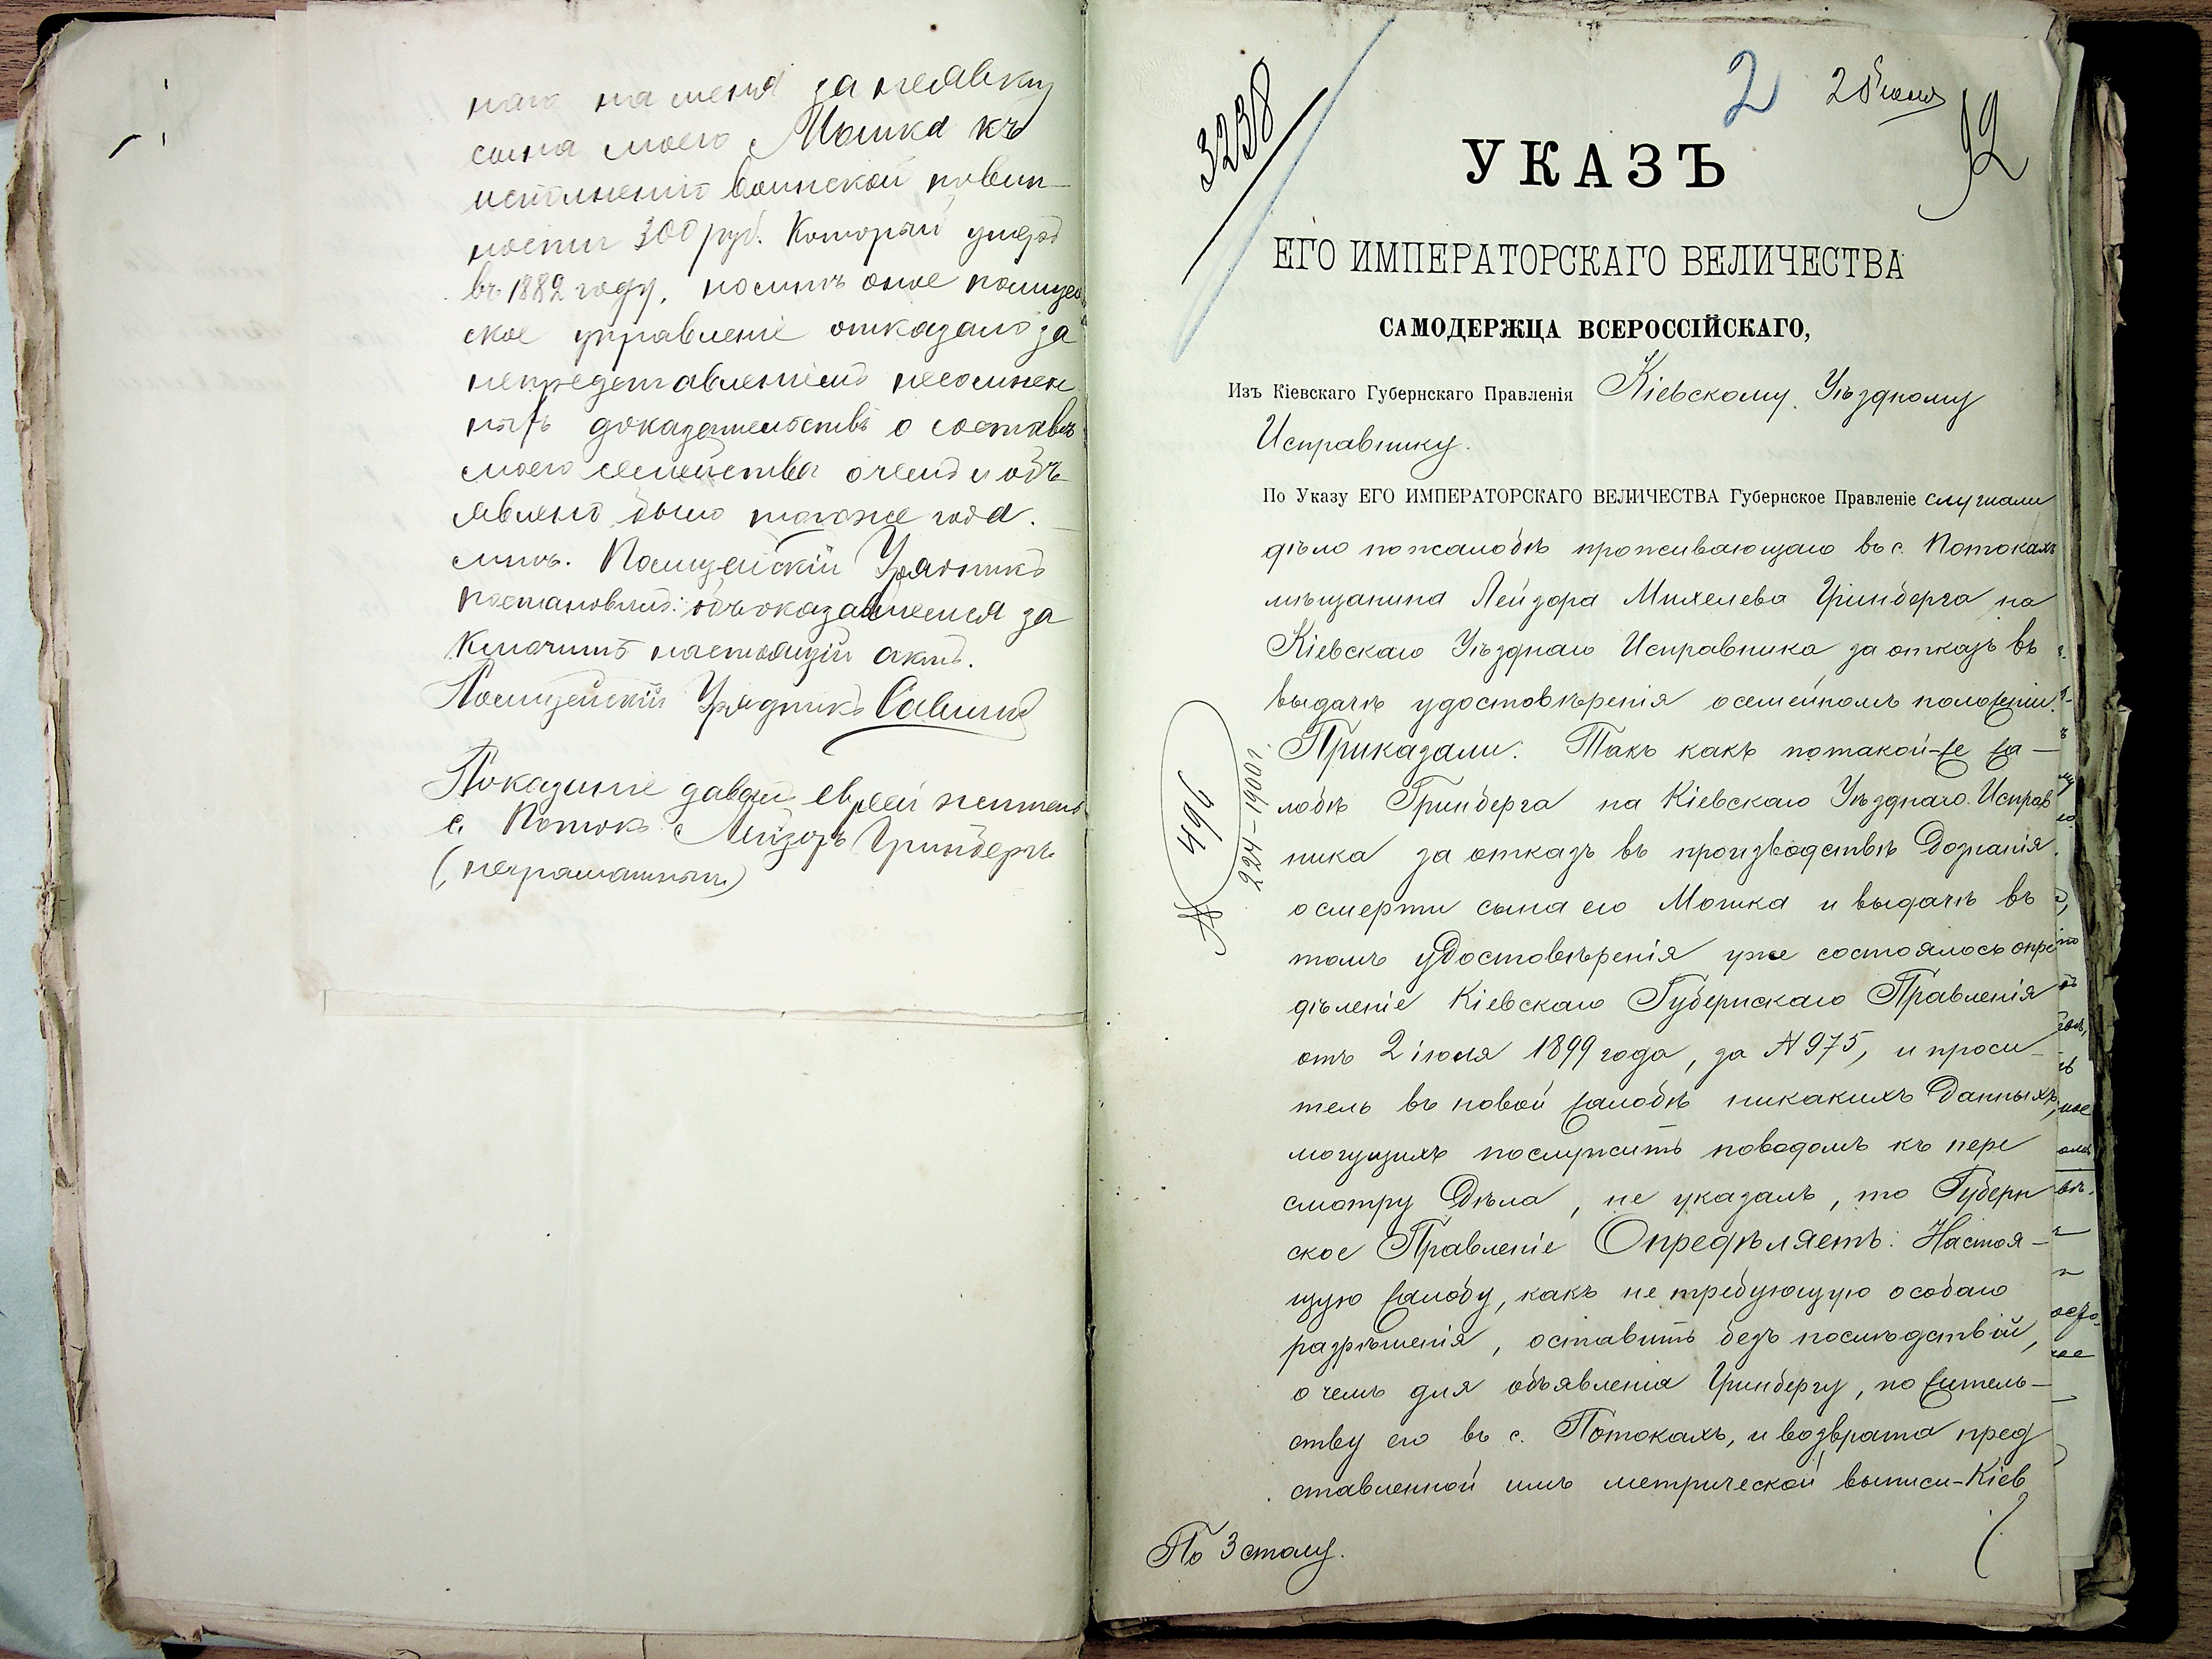 наго на меня за неявку
сына моего Мошка къ
исполненію воинской повин-
ности 300 руб. Который умеръ
въ 1882 году, но оное полицей
ское управленіе отказало за
непредставленіемъ несомнен
ныхъ доказательствъ о составѣ
моего семейства о чемъ и объ-
явлено было тогоже года.
Полицейскій Урядникъ
постановилъ: объ оказавшемся за
ключить настоящій актъ.
Полицейскій Урядникъ Савинъ
Показаніе давалъ еврей житель
с. Потокъ Лейзоръ Гринбергъ
(неграмотный)
3238
2
25 іюня
92
УКАЗЪ
ЕГО ИМПЕРАТОРСКАГО ВЕЛИЧЕСТВА
САМОДЕРЖЦА ВСЕРОССІЙСКАГО,
Изъ Кіевскаго Губернскаго Правленія Кіевскому Уѣздному
Исправнику.
По Указу ЕГО ИМПЕРАТОРСКАГО ВЕЛИЧЕСТВА Губернское Правленіе слушали
дѣло по жалобѣ проживающаго въ с. Потокахъ
мѣщанина Лейзора Михелева Гринберга на
Кіевскаго Уѣзднаго Исправника за отказъ въ
выдачѣ удостовѣренія о семейномъ положеніи.
Приказали: Такъ какъ по такой-же жа-
лобѣ Гринберга на Кіевскаго Уѣзднаго Исправ
ника за отказъ въ производствѣ дознанія
о смерти сына его Мошка и выдачѣ въ
томъ удостовѣренія уже состоялось опре
дѣленіе Кіевскаго Губернскаго Правленія
отъ 2 іюля 1899 года, за № 975, и проси-
тель въ новой жалобѣ никакихъ данныхъ,
могущихъ послужить поводомъ къ пере
смотру дѣла, не указалъ, то Губерн
ское Правленіе Опредѣляетъ: Настоя-
щую жалобу, какъ не требующую особаго
разрѣшенія, оставить безъ послѣдствій,
о чемъ для объявленія Гринбергу, по житель-
ству его въ с. Потокахъ, и возврата пред
ставленной имъ метрической выписи-Кіев
№ 496
224-1900 г.
По 3 столу.